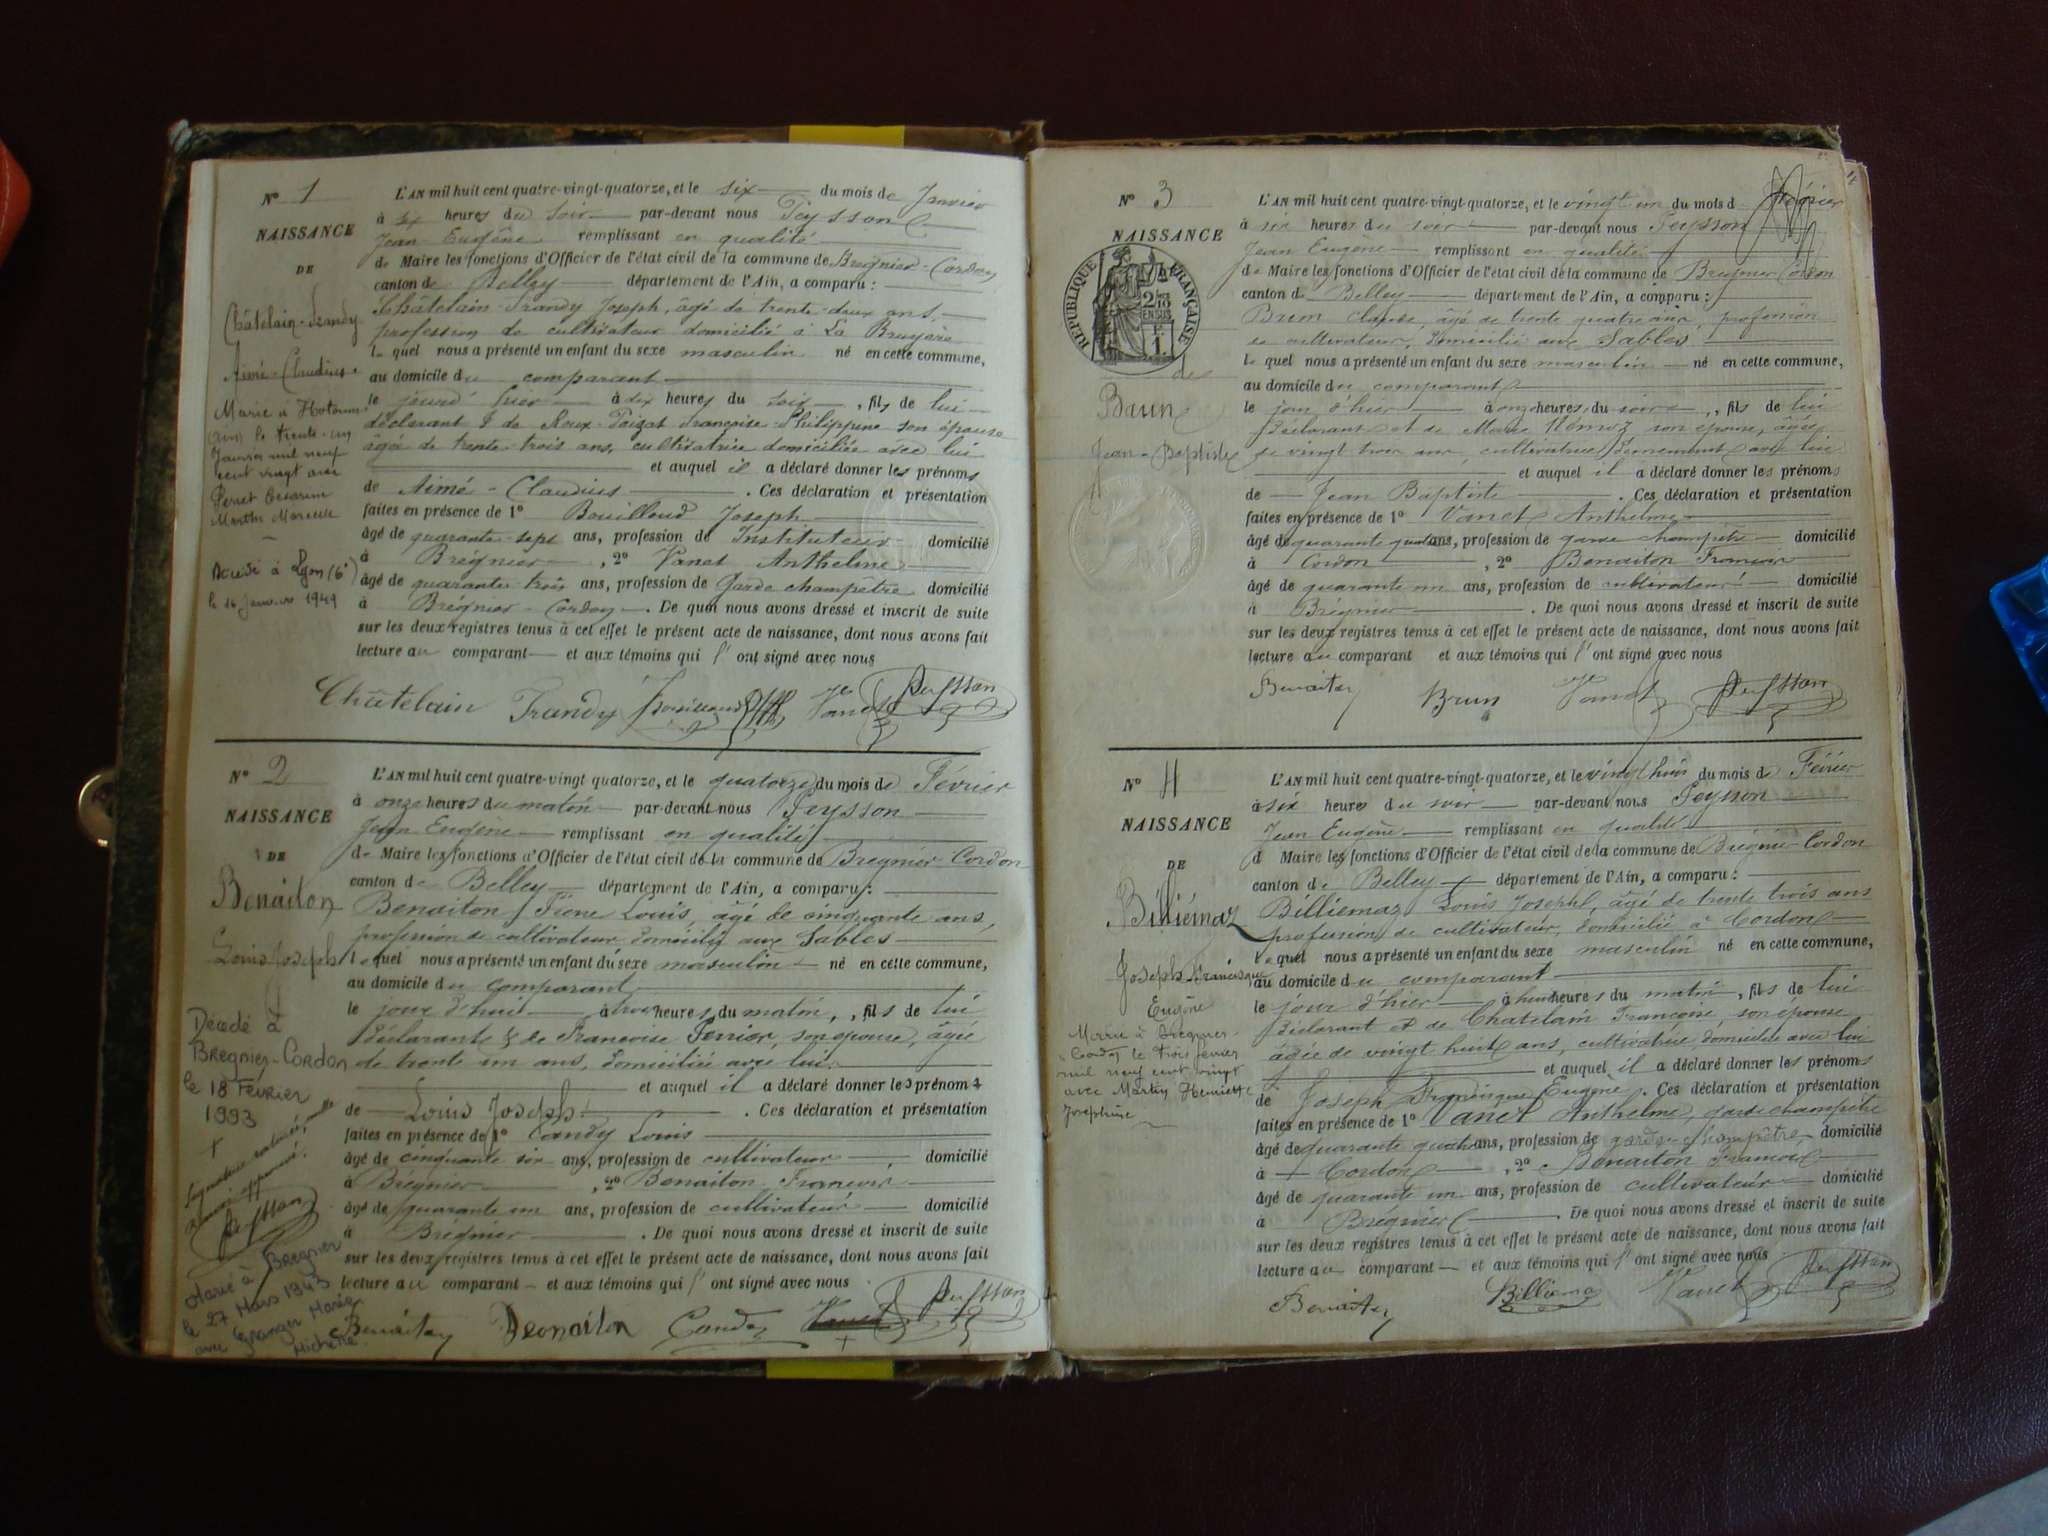 N° 1
NAISSANCE
DE
Châtelain-Trandy
Aimé-Claudius
Marié à Hotonnes
(Ain) le trente-un
Janvier mil neuf
cent vingt avec
Perret
Marthe
Décédé à Lyon (6e)
le 16 Janvier 1949
L'AN mil huit cent quatre-vingt-quatorze, et le six du mois de Janvier
à six heures du soir par-devant nous Peysson
Jean Eugène remplissant en qualité
de Maire les fonctions d'Officier de l'état civil de la commune de Brégnier-Cordon
canton de Belley département de l'Ain, a comparu :
Châtelain-Trandy Joseph, âgé de trente-deux ans,
profession de cultivateur domicilié à La Bruyère
lequel nous a présenté un enfant du sexe masculin né en cette commune,
au domicile du comparant
le jourd'hier à six heures du soir, fils de lui
déclarant & de Roux-Poizat Françoise-Philippine son épouse
âgée de trente-trois ans, cultivatrice domiciliée avec lui
et auquel il a déclaré donner les prénoms
de Aimé-Claudius. Ces déclaration et présentation
faites en présence de 1° Bouilloud Joseph
âgé de quarante-sept ans, profession de Instituteur domicilié
à Brégnier, 2° Vanet Anthelme
âgé de quarante-trois ans, profession de Garde champêtre domicilié
à Brégnier-Cordon. De quoi nous avons dressé et inscrit de suite
sur les deux registres tenus à cet effet le présent acte de naissance, dont nous avons fait
lecture au comparant et aux témoins qui l'ont signé avec nous
Châtelain Trandy Bouilloud Vanet Peysson
N° 2
NAISSANCE
DE
Benaiton
Louis Joseph
Décédé à
Brégnier-Cordon
le 18 Février
1993
+
Signature raturée, nulle
approuvé.
Peysson
Marié à Brégnier
le 27 Mars 1943
avec Granger Marie
Michelle
L'AN mil huit cent quatre-vingt quatorze, et le quatorze du mois de Février
à onze heures du matin par-devant nous Peysson
Jean Eugène remplissant en qualité
de Maire les fonctions d'Officier de l'état civil de la commune de Brégnier-Cordon
canton de Belley département de l'Ain, a comparu :
Benaiton Pierre Louis, âgé de cinquante ans,
profession de cultivateur domicilié aux Sables
lequel nous a présenté un enfant du sexe masculin né en cette commune,
au domicile du comparant
le jour d'hui à trois heures du matin, fils de lui
déclarant & de Françoise Perrier, son épouse, âgée
de trente un ans, domiciliée avec lui
et auquel il a déclaré donner les prénoms
de Louis Joseph. Ces déclaration et présentation
faites en présence de 1° Candy Louis
âgé de cinquante six ans, profession de cultivateur, domicilié
à Brégnier, 2° Benaiton François
âgé de quarante un ans, profession de cultivateur domicilié
à Brégnier. De quoi nous avons dressé et inscrit de suite
sur les deux registres tenus à cet effet le présent acte de naissance, dont nous avons fait
lecture au comparant et aux témoins qui l'ont signé avec nous
Benaiton Benaiton Candy Vanet Peysson
+
N° 3
NAISSANCE
RÉPUBLIQUE FRANÇAISE
2/10 EN SUS
de
Brun
Jean-Baptiste
L'AN mil huit cent quatre-vingt-quatorze, et le vingt un du mois de Février
à six heures du soir par-devant nous Peysson
Jean Eugène remplissant en qualité
de Maire les fonctions d'Officier de l'état civil de la commune de Brégnier-Cordon
canton de Belley département de l'Ain, a comparu :
Brun Claude, âgé de trente quatre ans, profession
de cultivateur, domicilié aux Sables
lequel nous a présenté un enfant du sexe masculin né en cette commune,
au domicile du comparant
le jour d'hier à onze heures du soir, fils de lui
déclarant et de Marie Némoz son épouse, âgée
de vingt trois ans, cultivatrice demeurant avec lui
et auquel il a déclaré donner les prénoms
de Jean Baptiste. Ces déclaration et présentation
faites en présence de 1° Vanet Anthelme
âgé de quarante quatre ans, profession de garde champêtre domicilié
à Cordon, 2° Benaiton François
âgé de quarante un ans, profession de cultivateur domicilié
à Brégnier. De quoi nous avons dressé et inscrit de suite
sur les deux registres tenus à cet effet le présent acte de naissance, dont nous avons fait
lecture au comparant et aux témoins qui l'ont signé avec nous
Benaiton Brun Vanet Peysson
N° 4
NAISSANCE
DE
Billiémaz
Joseph Francisque
Eugène
Marié à Brégnier-
Cordon le trois février
mil neuf cent vingt
avec Martin Henriette
Joséphine
L'AN mil huit cent quatre-vingt-quatorze, et le vingt huit du mois de Février
à six heures du soir par-devant nous Peysson
Jean Eugène remplissant en qualité
de Maire les fonctions d'Officier de l'état civil de la commune de Brégnier-Cordon
canton de Belley département de l'Ain, a comparu :
Billiemaz Louis Joseph, âgé de trente trois ans
profession de cultivateur, domicilié à Cordon
lequel nous a présenté un enfant du sexe masculin né en cette commune,
au domicile du comparant
le jour d'hier à huit heures du matin, fils de lui
déclarant et de Chatelain Françoise son épouse
âgée de vingt huit ans, cultivatrice domiciliée avec lui
et auquel il a déclaré donner les prénoms
de Joseph Francisque Eugène. Ces déclaration et présentation
faites en présence de 1° Vanet Anthelme, garde champêtre
âgé de quarante quatre ans, profession de garde-champêtre, domicilié
à Cordon, 2° Benaiton François
âgé de quarante un ans, profession de cultivateur domicilié
à Brégnier. De quoi nous avons dressé et inscrit de suite
sur les deux registres tenus à cet effet le présent acte de naissance, dont nous avons fait
lecture au comparant et aux témoins qui l'ont signé avec nous
Benaiton Billiemaz Vanet Peysson